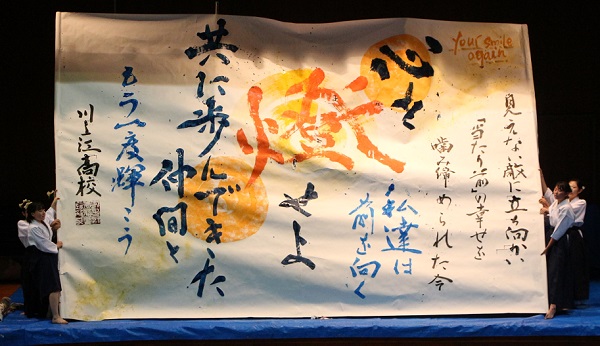 your smile again
見えない敵に立ち向かい
「当たり前」の幸せを
噛み締められた今
心を
燃
せよ
私達は
前を向く
共に歩んできた
仲間と
もう一度輝こう
川之江高校